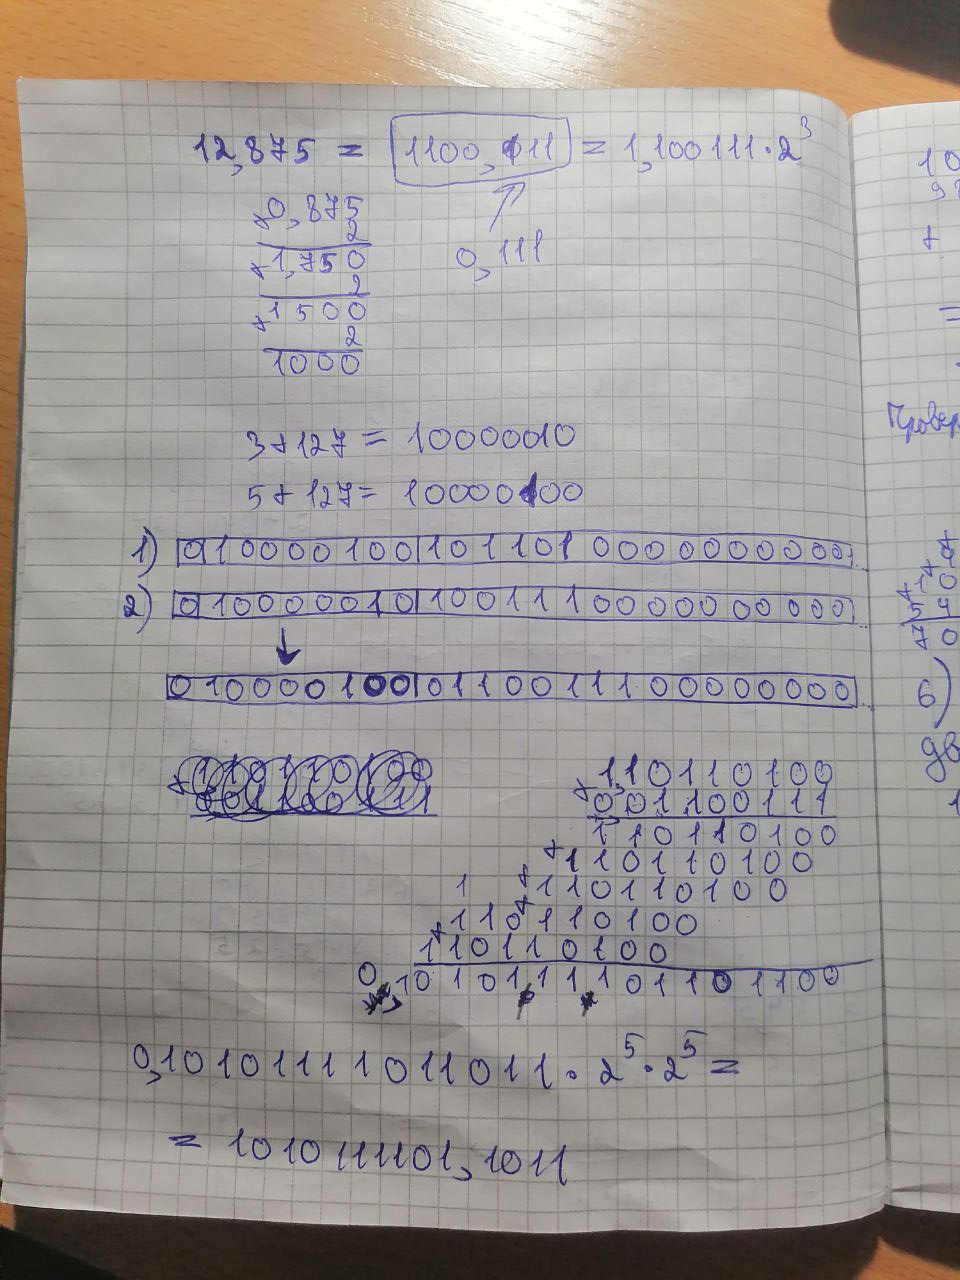 12,875 = 1100,111 = 1,100111·2³
0,875
2
1,750
2
1500
2
1000
0,111
3+127 = 10000010
5+127= 10000100
1) 0 10000100 101101 0000000000
2) 0 10000010 100111100000 00 000
↓
0 10000100 0110011100000000
110110100
+ 001100111
110110100
+ 110110100
1 + 110110100
+ 110110100
+ 110110100
0,10101111101101100
0,101011111011011·2⁵·2⁵=
= 1010111101,1011
10
+
=
Провер
6)
дв